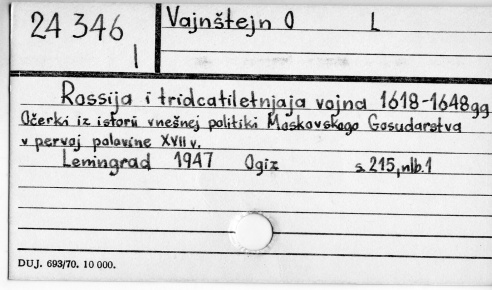 24 346
I
Vajnštejn O L
Rossija i tridcatiletnjaja vojna 1618-1648gg
Očerki iz istorii vnešnej politiki Moskovskogo Gosudarstva
v pervoj polovine XVII v.
Leningrad 1947 Ogiz s. 215, nlb. 1
DUJ. 693/70. 10 000.